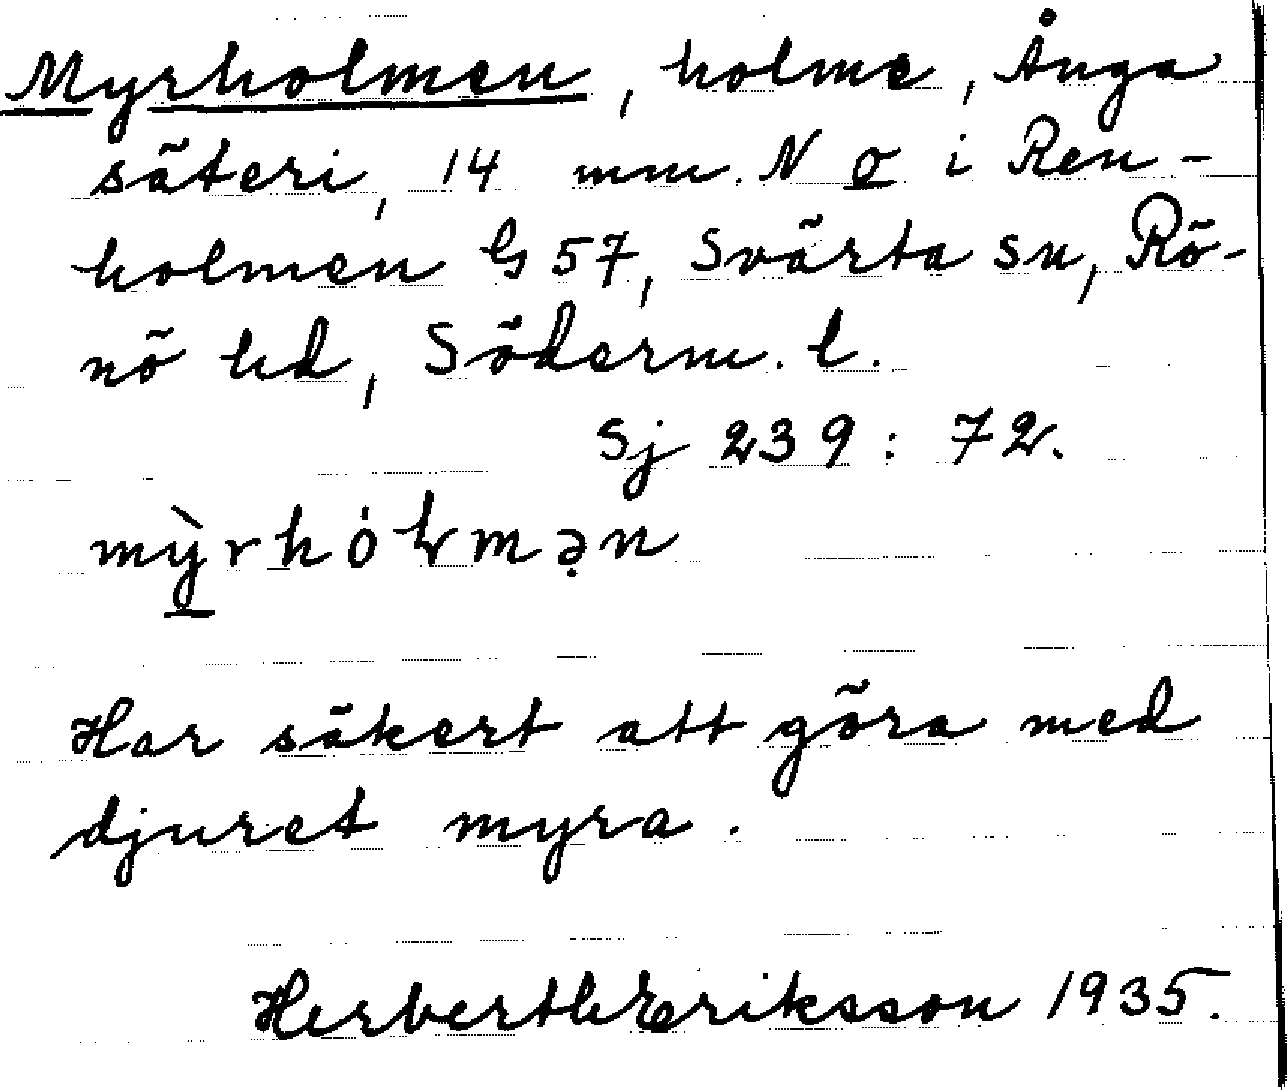 Myrholmen, holme, Ånga
säteri, 14 mm. N o i Ren-
holmen G 57, Svärta sn, Rö-
nö hd, Söderm. l.
Sj 239 : 72.
mỳ̱rhȯłmə̣n
Har säkert att göra med
djuret myra.
Herbert Eriksson 1935.